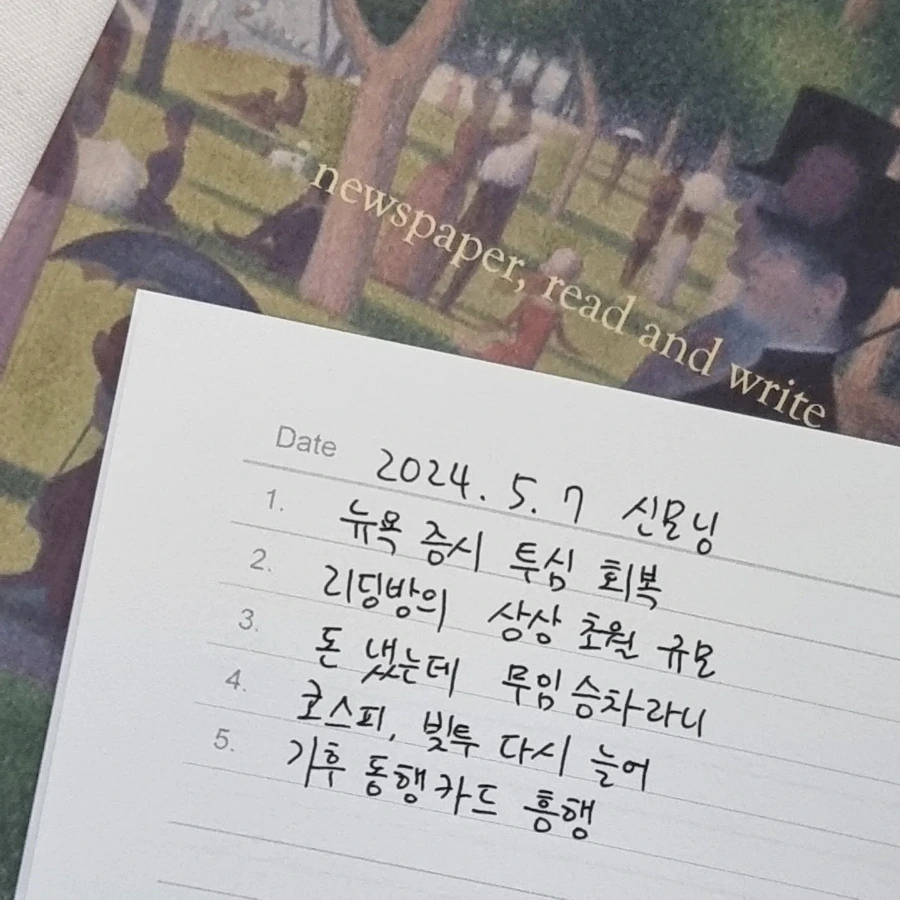 newspaper, read and write
Date 2024. 5. 7 신모닝
1. 뉴욕 증시 투심 회복
2. 리딩방의 상상 초월 규모
3. 돈 냈는데 무임승차라니
4. 코스피, 빚투 다시 늘어
5. 기후동행카드 흥행